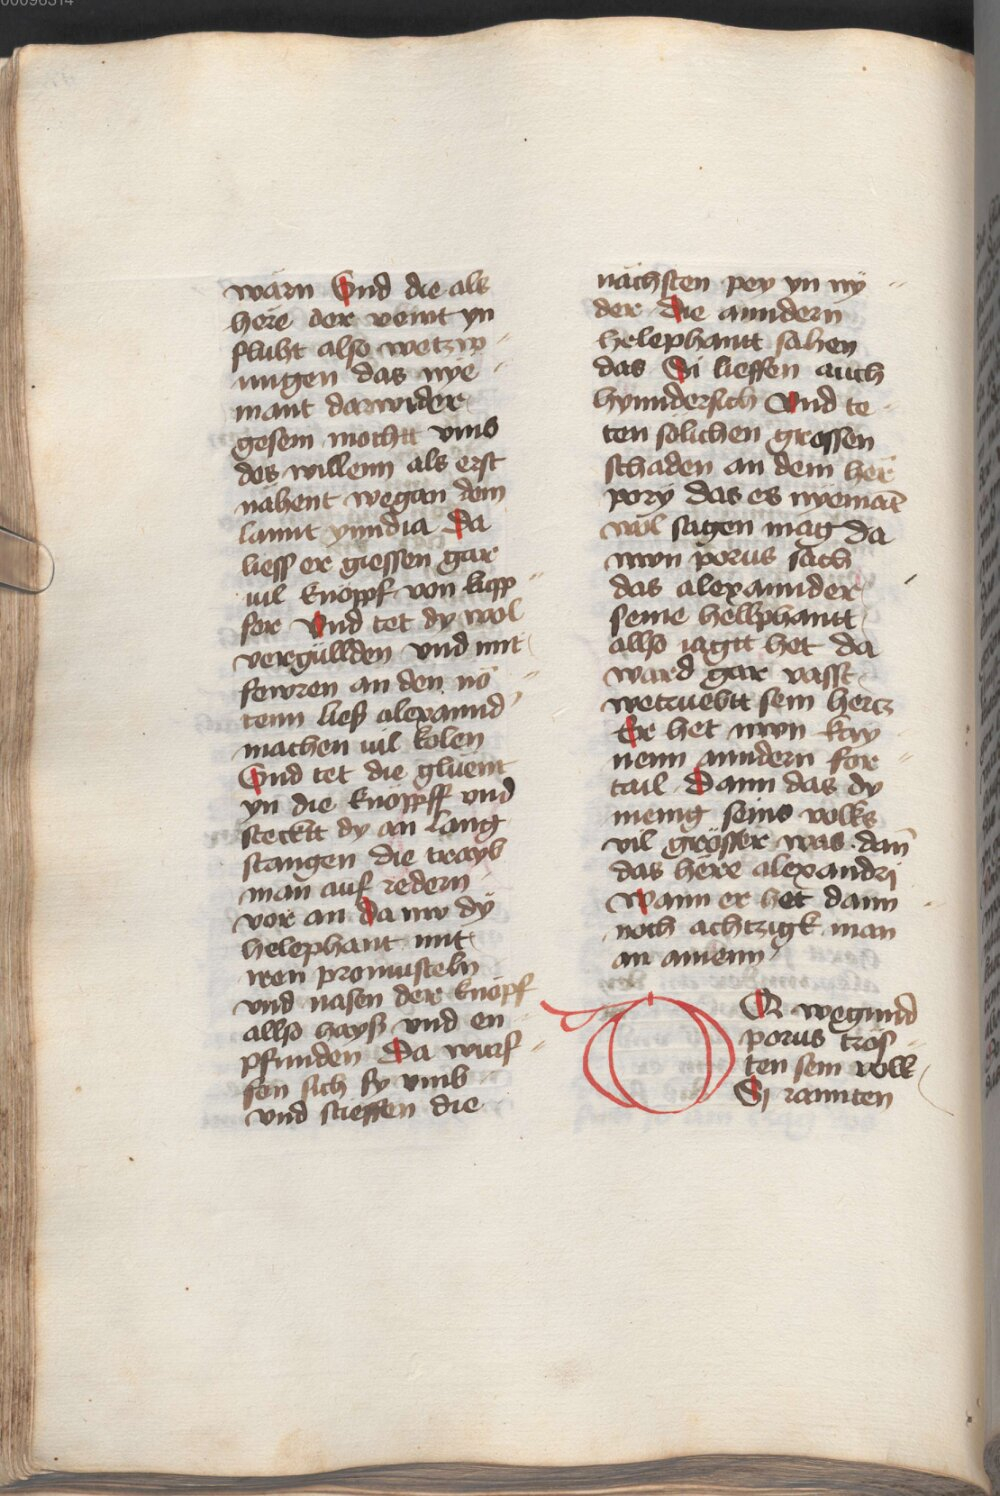 00096314
warn Und die als
here der veint yn
fluht also wetzw
ungen das nye
mant darwider
gesein mochtt vmb
des willenn als erst
nähent wegan dem
lannt yindia Da
liess er giessen gar
uil knöppf von kupp
fer Und tet dy wol
vergüllden vnd mit
fewren an den nö
tenn ließ alexannd
machen uil kolen
Und tet die glüent
yn die knöppff vnd
stecktt dy an lang
stangen die trayb
man auf redern
vor an Da nw dy
helephant mit
iren promusteln
vnd nasen der knöpf
allso hayß vnd en
pfunden Da wurf
fen sich sy vmb
vnd stiessen die
nächsten pey yn ny
der Die anndern
helephannt sahen
das Si lieffen auch
hynndersich Vnd te
ten sölichen grossen
schaden an dem her
pory das es nyemāt
wol sagen mag da
nwn porus sach
das alexannder
seine hellphantt
allso iagtt het da
ward gar vasst
wetruebtt sein hertz
Er het nwn kay
nenn anndern for
tail Dann das dy
menig seins volks
vil grösser was dañ
das here alexandri
Wann er het dann
noch achtzigk man
an ainenn
DR wegund
porus trös
ten sein volk
Si rannten